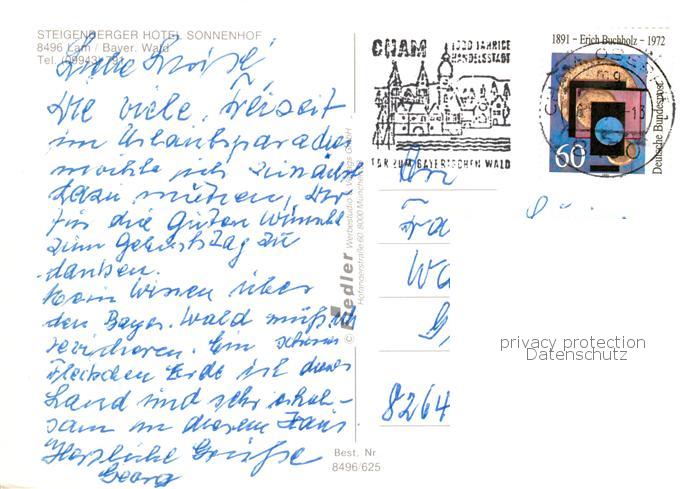 STEIGENBERGER HOTEL SONNENHOF
8496 Lam / Bayer. Wald
Tel. (09943) 791
Die viele Freizeit
im Urlaubsparadies
möchte ich zunächst
dazu nützen, Dir
für die Guten Wünsche
zum Geburtstag zu
danken.
Mein Wissen über
den Bayer. Wald muß ich
revidieren. Ein schönes
Fleckchen Erde ist dieses
Land und sehr erhol-
sam in diesem Haus.
Herzliche Grüße
Georg
© Fiedler Werbestudio & Verlags-GmbH
8000 München
Best. Nr
8496/625
CHAM 1200 JÄHRIGE
HANDELSSTADT
TOR ZUM BAYERISCHEN WALD
1891 – Erich Buchholz – 1972
60
Deutsche Bundespost
An
Fa
8264
privacy protection
Datenschutz